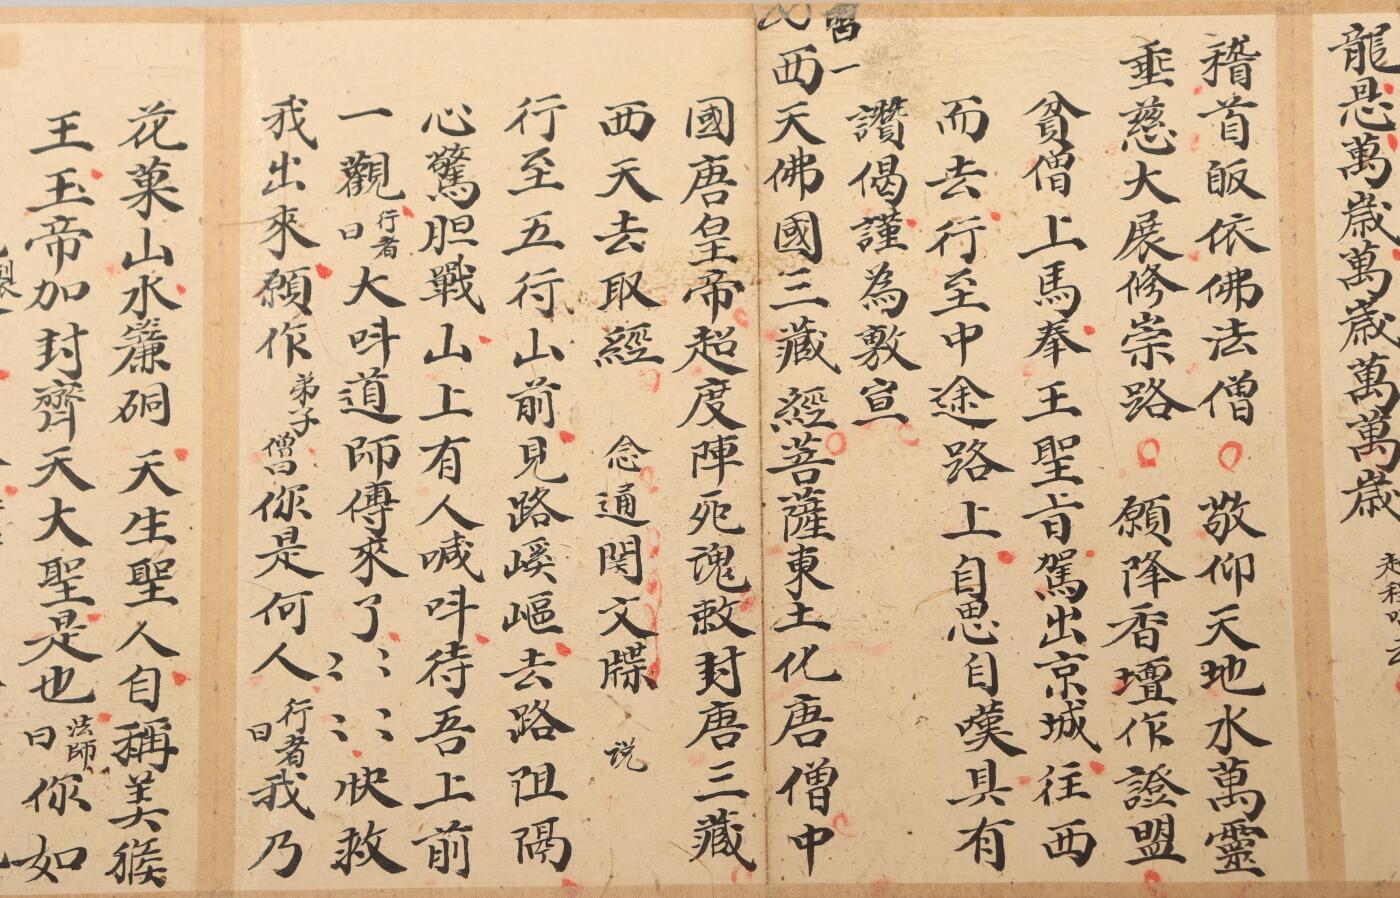 龍恩萬歲萬歲萬萬歲
稽首皈依佛法僧 敬仰天地水萬靈
垂慈大展修崇路 願降香壇作證盟
貧僧上馬奉王聖旨駕出京城往西
而去行至中途路上自思自嘆具有
一讚偈謹為敷宣
西天佛國三藏經菩薩東土化唐僧中
國唐皇帝超度陣死魂敕封唐三藏
西天去取經 念通関文牒 説
行至五行山前見路嵠嶇去路阻隔
心驚胆戰山上有人喊呌待吾上前
一觀行者曰大呌道師傅來了:::: 快救
我出來願作弟子僧曰你是何人行者曰我乃
花菓山水簾硐天生聖人自稱美猴
王玉帝加封齊天大聖是也法師曰你如